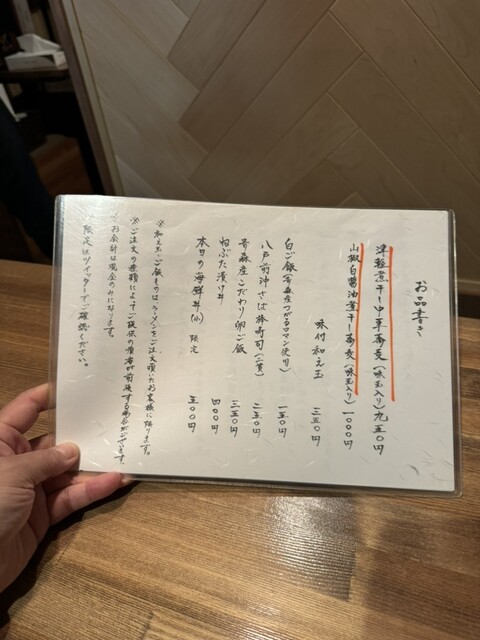 お品書き
津軽煮干し中華蕎麦(味玉入り)九五〇円
山椒白醤油煮干し蕎麦(味玉入り)一〇〇〇円
味付和え玉 三五〇円
白ご飯(青森産つがるロマン使用) 一五〇円
八戸前沖さば棒寿司(二貫) 二五〇円
青森産こだわり卵ご飯 三五〇円
ねぶた漬け丼 四〇〇円
本日の海鮮丼(小) 限定 五〇〇円
※和え玉、ご飯ものは、ラーメンをご注文頂いたお客様に限ります。
※ご注文の種類によってご提供の順番が前後する場合がございます。
お会計は現金のみになります。
限定はツイッターでご確認ください。